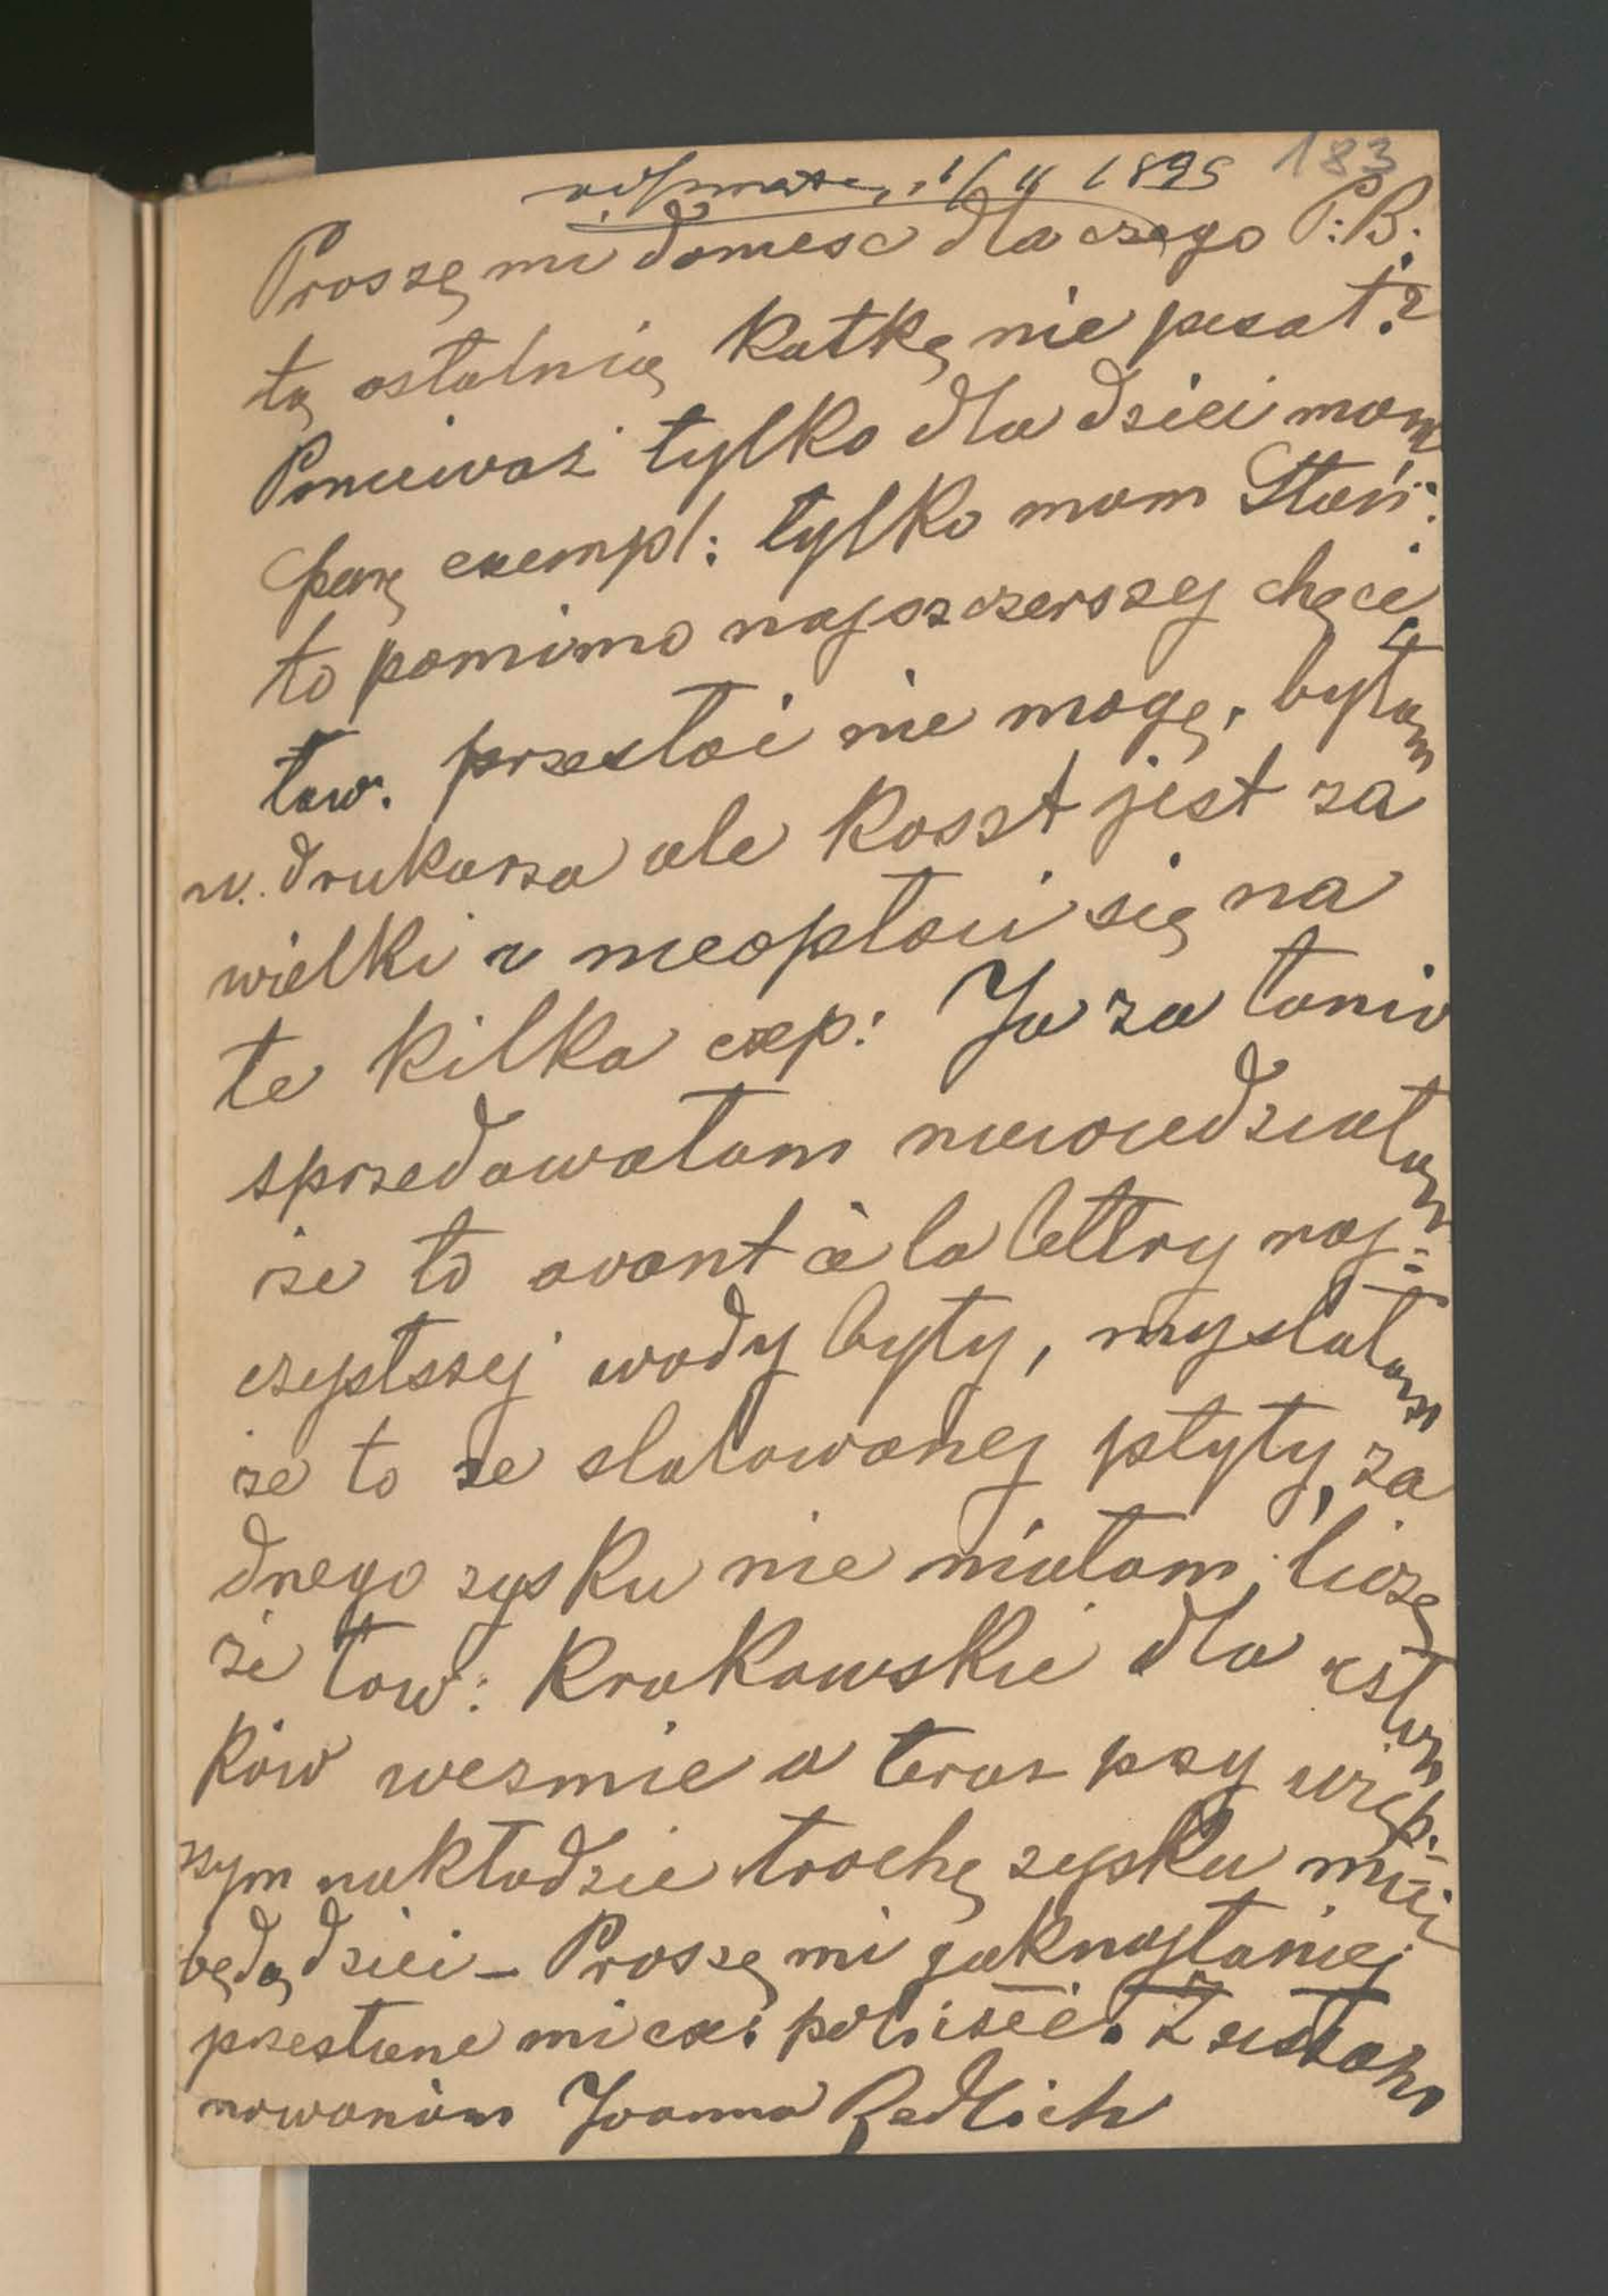 183
odpisane, 1/ 4 1895
Proszę mi donieść dla czego P: B:
tą ostatnią Katkę nie pisał?
Ponieważ tylko dla dzieci mam
parę exempl: tylko mam Stań:
to pomimo najszczerszej chęci
tow. przesłać nie mogę, byłam
u. drukarza ale Koszt jest za
wielki i nieopłaci się na
te kilka exp: Ja za tanio
sprzedawałam niewiedziałam
że to avant à la lettry naj=
czystszej wody były, myslałam
że to ze stalowanej płyty, ża
dnego zysku nie miałam, liczę
że tow: Krakowskie dla człon
ków wezmie a teraz pzy więk-
szym nakładzie trochę zysku mieć
będą dzieci – Proszę mi jaknajtaniej
przesłane mi ex: policzéć. Z uszano
nowaniem Joanna Redlich